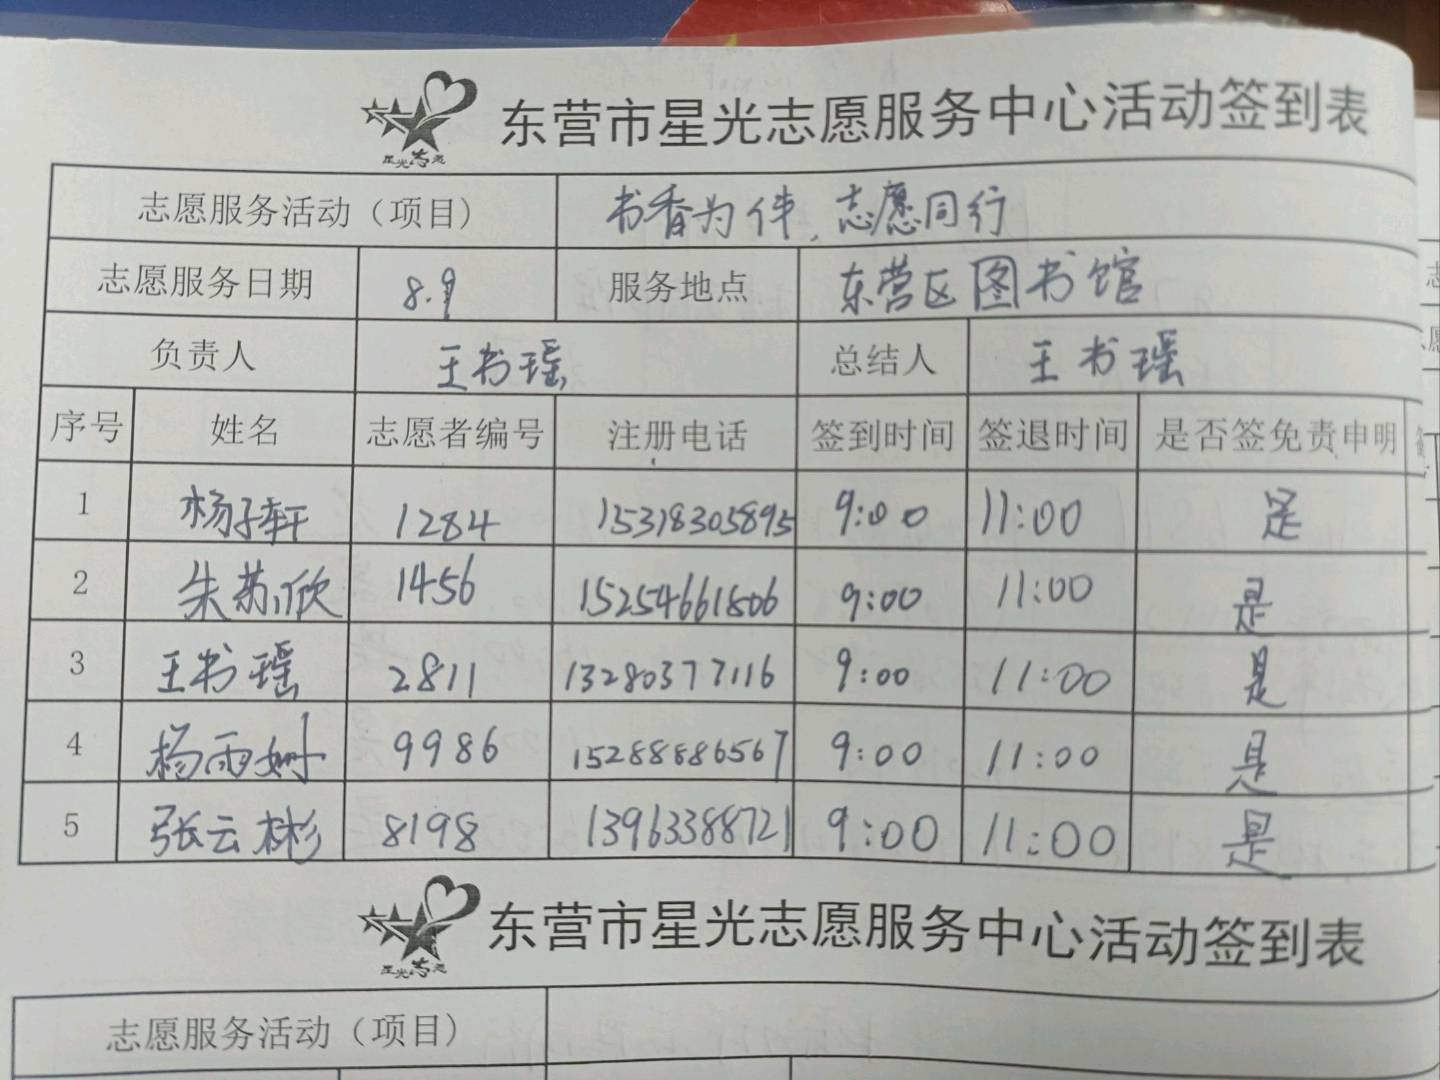 东营市星光志愿服务中心活动签到表
星光志愿
志愿服务活动（项目） 书香为伴，志愿同行
志愿服务日期 8.9 服务地点 东营区图书馆
负责人 王书瑶 总结人 王书瑶
序号 姓名 志愿者编号 注册电话 签到时间 签退时间 是否签免责申明
1 杨子轩 1284 15318305895 9:00 11:00 是
2 朱苏欣 1456 15254661806 9:00 11:00 是
3 王书瑶 2811 13280377116 9:00 11:00 是
4 杨雨姗 9986 15288886567 9:00 11:00 是
5 张云彬 8198 13963388721 9:00 11:00 是
东营市星光志愿服务中心活动签到表
星光志愿
志愿服务活动（项目）